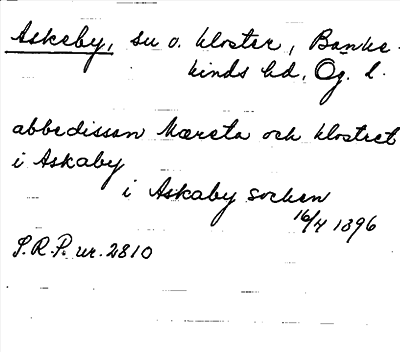 Askeby, su o. kloster, Banke-
kinds hd, Ög. l.
abbedissan Mæreta och klostret
i Askaby
i Askaby socken
16/4 1396
S.R.P. nr. 2810